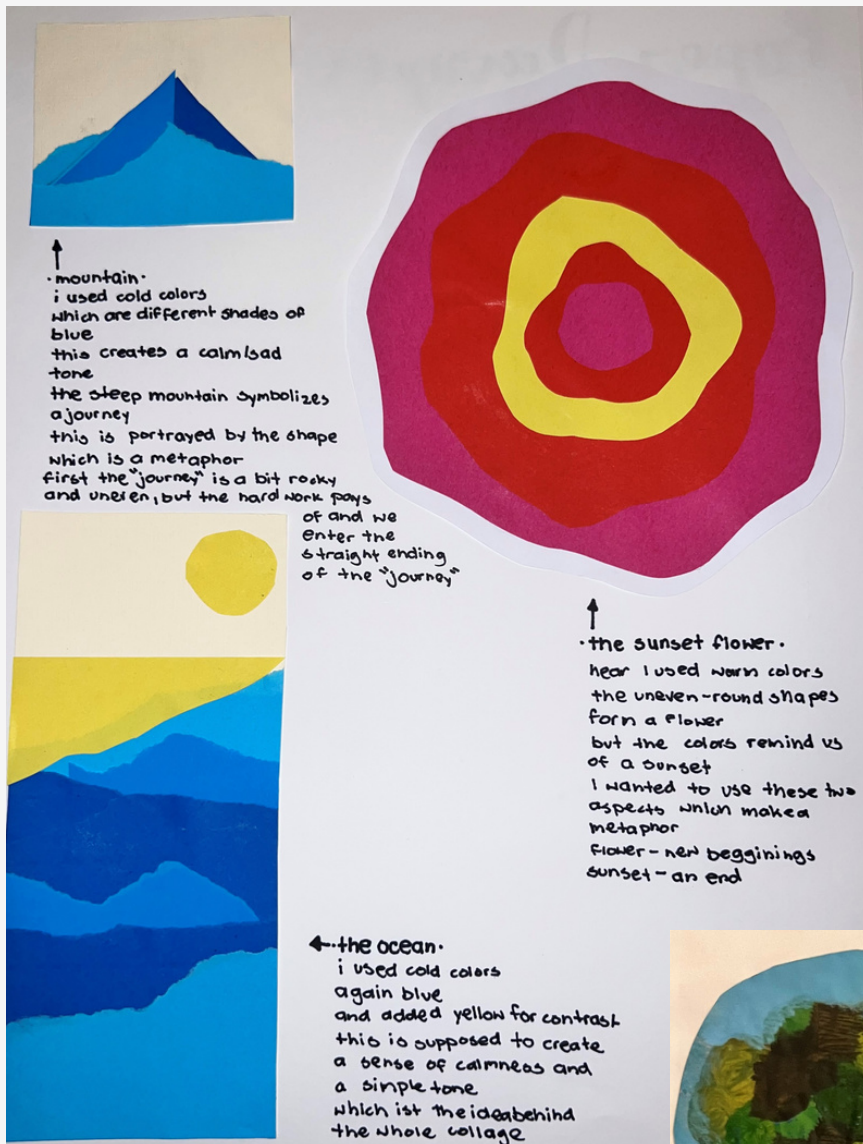 ·mountain·
i used cold colors
which are different shades of
blue
this creates a calm/sad
tone
the steep mountain symbolizes
a journey
this is portrayed by the shape
which is a metaphor
first the "journey" is a bit rocky
and uneven, but the hard work pays
of and we
enter the
straight ending
of the "journey"
·the sunset flower·
hear I used warm colors
the uneven-round shapes
form a flower
but the colors remind us
of a sunset
I wanted to use these two
aspects which make a
metaphor
flower - new begginings
sunset - an end
·the ocean·
i used cold colors
again blue
and added yellow for contrast
this is supposed to create
a sense of calmness and
a simple tone
which ist the idea behind
the whole collage